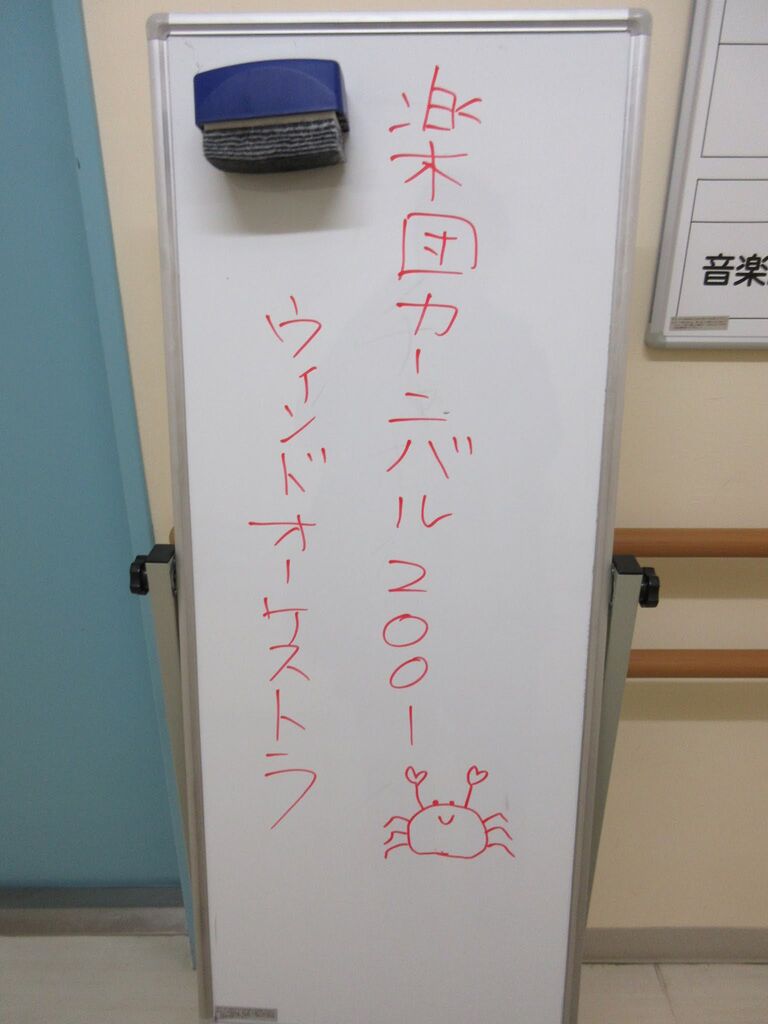 楽団カーニバル2001
ウィンドオーケストラ
音楽